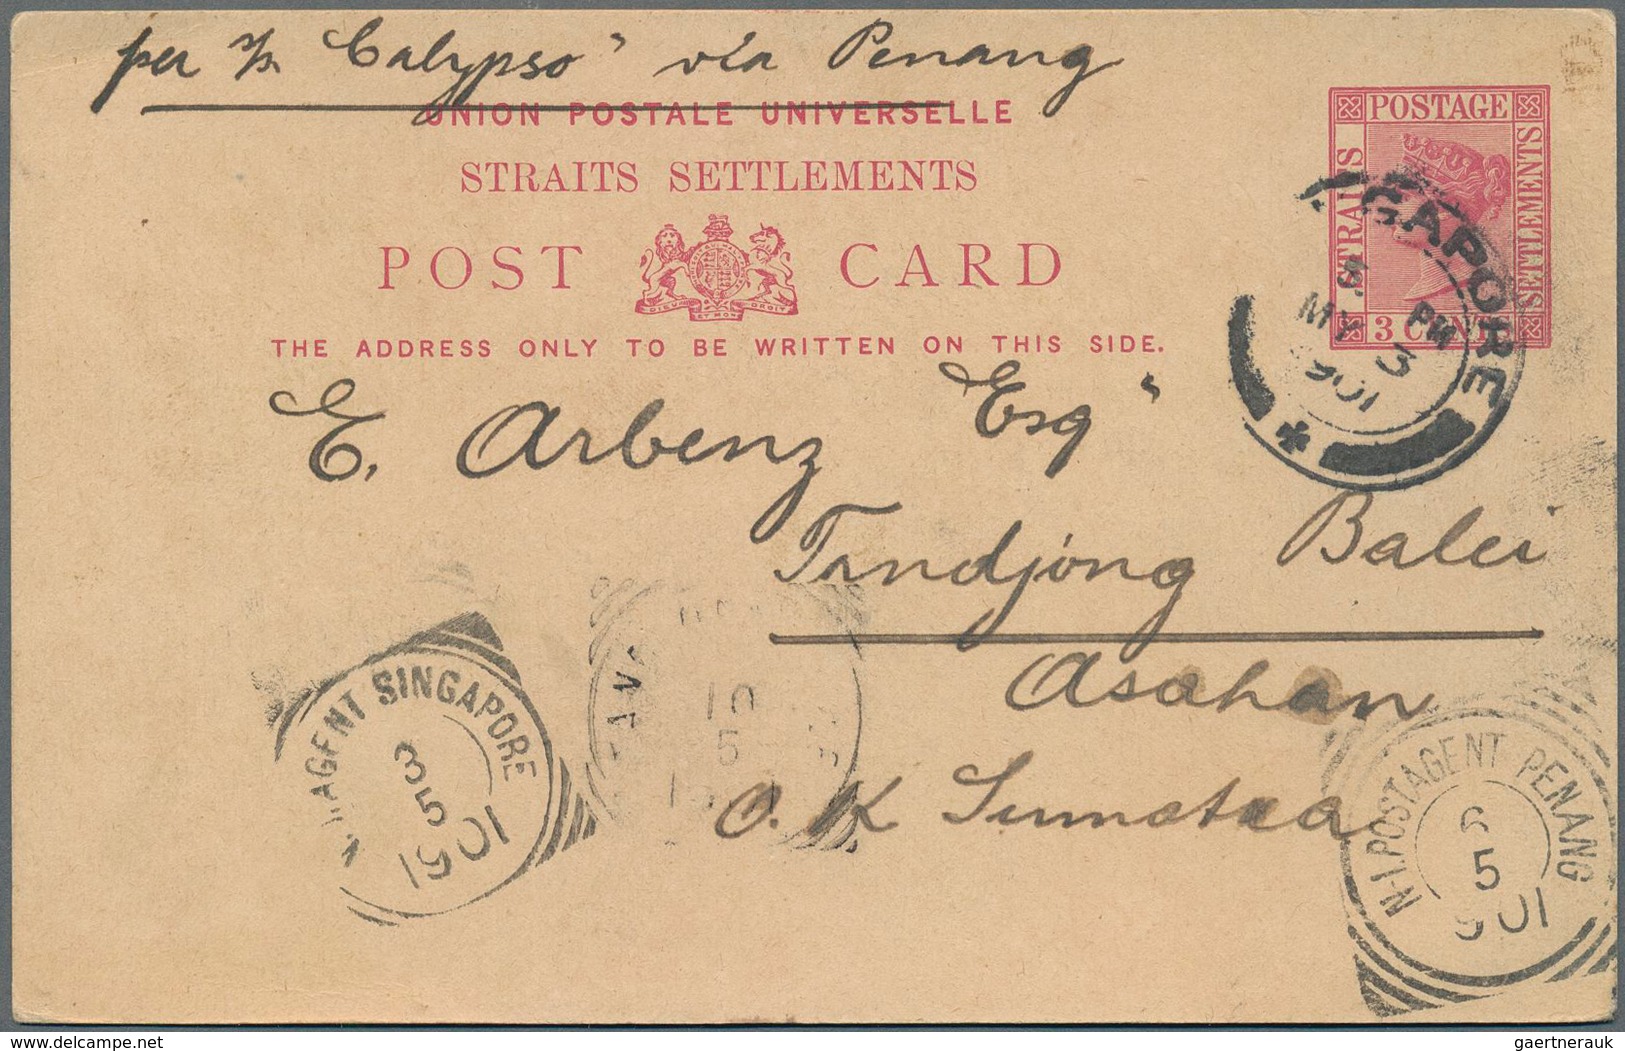 per s/s. "Calypso" via Penang
UNION POSTALE UNIVERSELLE
STRAITS SETTLEMENTS
POST CARD
DIEU ET MON DROIT
THE ADDRESS ONLY TO BE WRITTEN ON THIS SIDE.
POSTAGE
STRAITS
SETTLEMENTS
3 CENTS
GAPORE
5 PM
MY 3
1901
E. Arbenz Esq"
Tandjong Balei
Asahan
O. K Sumatra
N.I.AGENT SINGAPORE
3
5
1901
10
5
N-I.POSTAGENT PENANG
6
5
901
hipstamp.com
gaertnerauk